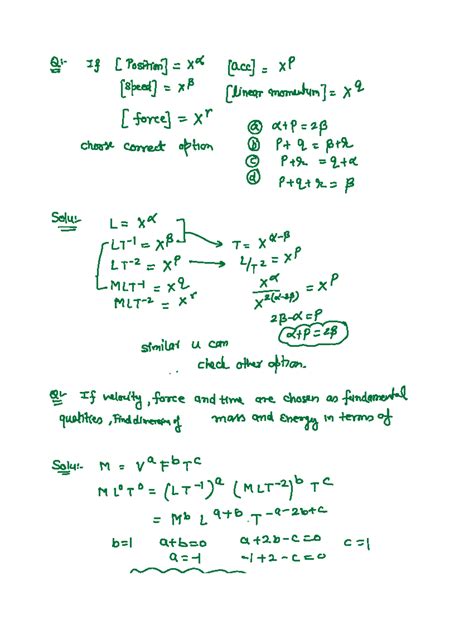 Q:- If [Position] = X^α [acc] = X^p
[Speed] = X^β [linear momentum] = X^q
[force] = X^r
choose correct option
ⓐ α+p = 2β
ⓑ p+q = β+r
ⓒ p+r = q+α
ⓓ p+q+r = β
Solu:-
L = X^α
LT^-1 = X^β → T = X^(α-β)
LT^-2 = X^p → L/T^2 = X^p
MLT^-1 = X^q
MLT^-2 = X^r
X^α / X^(2(α-2β)) = X^p
2β-α = p
α+p = 2β
similar u can
∴ check other option.
Q:- If velocity, force and time are chosen as fundamental
quantities, Find dimension of mass and Energy in terms of
Solu:- M = V^a F^b T^c
M L^0 T^0 = (LT^-1)^a (MLT^-2)^b T^c
= M^b L^(a+b) T^(-a-2b+c)
b=1 a+b=0 a+2b-c=0 c=1
a=-1 -1+2-c=0